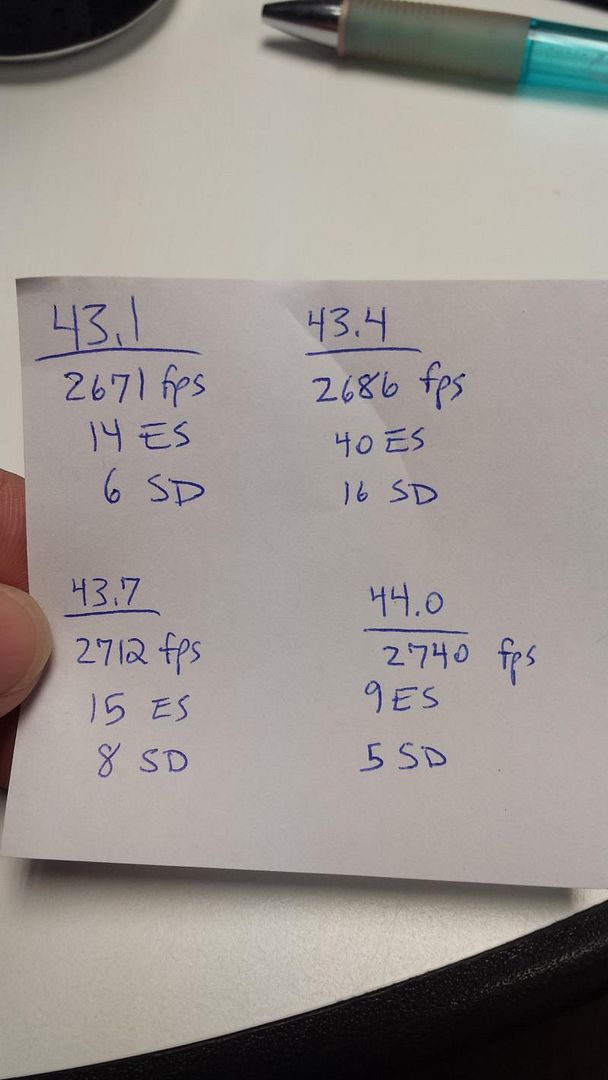 43.1
2671 fps
14 ES
6 SD
43.4
2686 fps
40 ES
16 SD
43.7
2712 fps
15 ES
8 SD
44.0
2740 fps
9 ES
5 SD